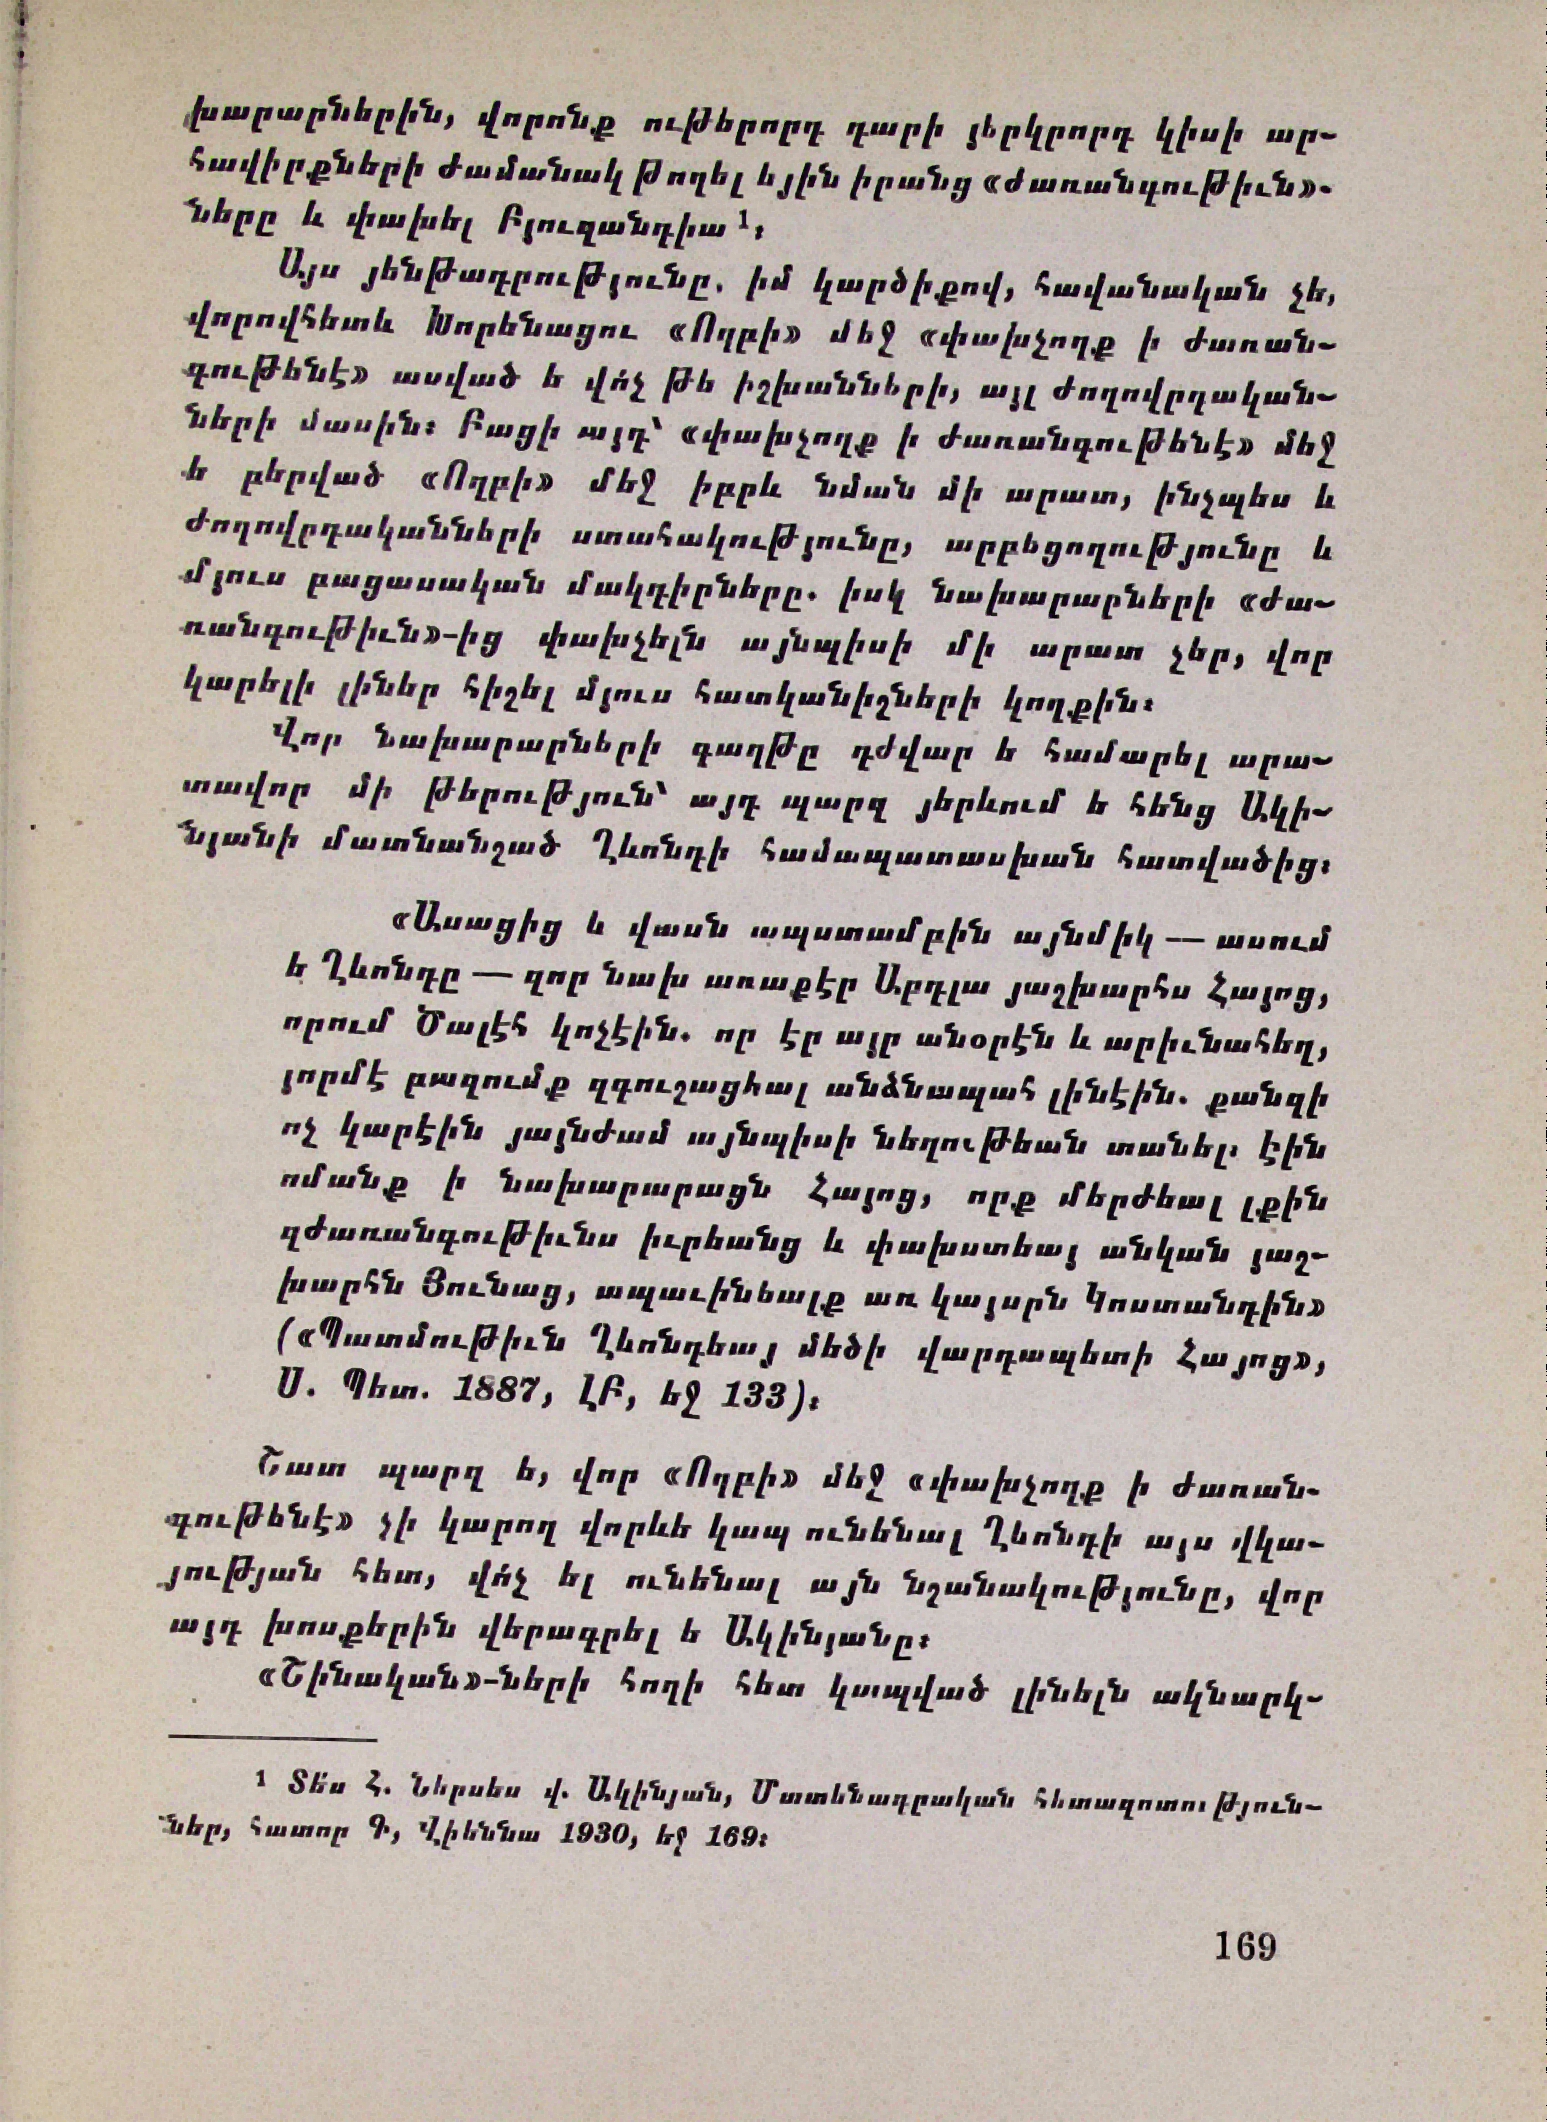 խարարներին, վորոնք ութերորդ դարի յերկրորդ կիսի ար-
հավիրքների ժամանակ թողել եյին իրանց «ժառանգութիւն»-
ները և փախել Բյուզանդիա ¹։
Այս յենթադրությունը. իմ կարծիքով, հավանական չե,
վորովհետև Խորենացու «Ողբի» մեջ «փախչողք ի ժառան-
գութենէ» ասված ե վո՛չ թե իշխանների, այլ ժողովրդական-
ների մասին։ Բացի այդ՝ «փախչողք ի ժառանգութենէ» մեջ
ե բերված «Ողբի» մեջ իբրև նման մի արատ, ինչպես և
ժողովրդականների ստահակությունը, արբեցողությունը և
մյուս բացասական մակդիրները. իսկ նախարարների «ժա-
ռանգութիւն»-ից փախչելն այնպիսի մի արատ չեր, վոր
կարելի լիներ հիշել մյուս հատկանիշների կողքին։
Վոր նախարարների գաղթը դժվար ե համարել արա-
տավոր մի թերություն՝ այդ պարզ յերևում ե հենց Ակի-
նյանի մատնանշած Ղևոնդի համապատասխան հատվածից։
«Ասացից և վասն ապստամբին այնմիկ — ասում
ե Ղևոնդը — զոր նախ առաքէր Աբդլա յաշխարհս Հայոց,
որում Ծալէհ կոչէին. որ էր այր անօրէն և արիւնահեղ,
յորմէ բազումք զգուշացեալ անձնապահ լինէին. քանզի
ոչ կարէին յայնժամ այնպիսի նեղութեան տանել. էին
ոմանք ի նախարարացն Հայոց, որք մերժեալ լքին
զժառանգութիւնս իւրեանց և փախստեայ անկան յաշ-
խարհն Յունաց, ապաւինեալք առ կայսրն Կոստանդին»
(«Պատմութիւն Ղևոնդեայ մեծի վարդապետի Հայոց»,
Ս. Պետ. 1887, ԼԲ, եջ 133)։
Շատ պարզ ե, վոր «Ողբի» մեջ «փախչողք ի ժառան-
գութենէ» չի կարող վորևե կապ ունենալ Ղևոնդի այս վկա-
յության հետ, վո՛չ ել ունենալ այն նշանակությունը, վոր
այդ խոսքերին վերագրել ե Ակինյանը։
«Շինական»-ների հողի հետ կապված լինելն ակնարկ-
¹ Տե՛ս Հ. Ներսես վ. Ակինյան, Մատենագրական հետազոտություն-
ներ, հատոր Գ, Վիեննա 1930, եջ 169։
169